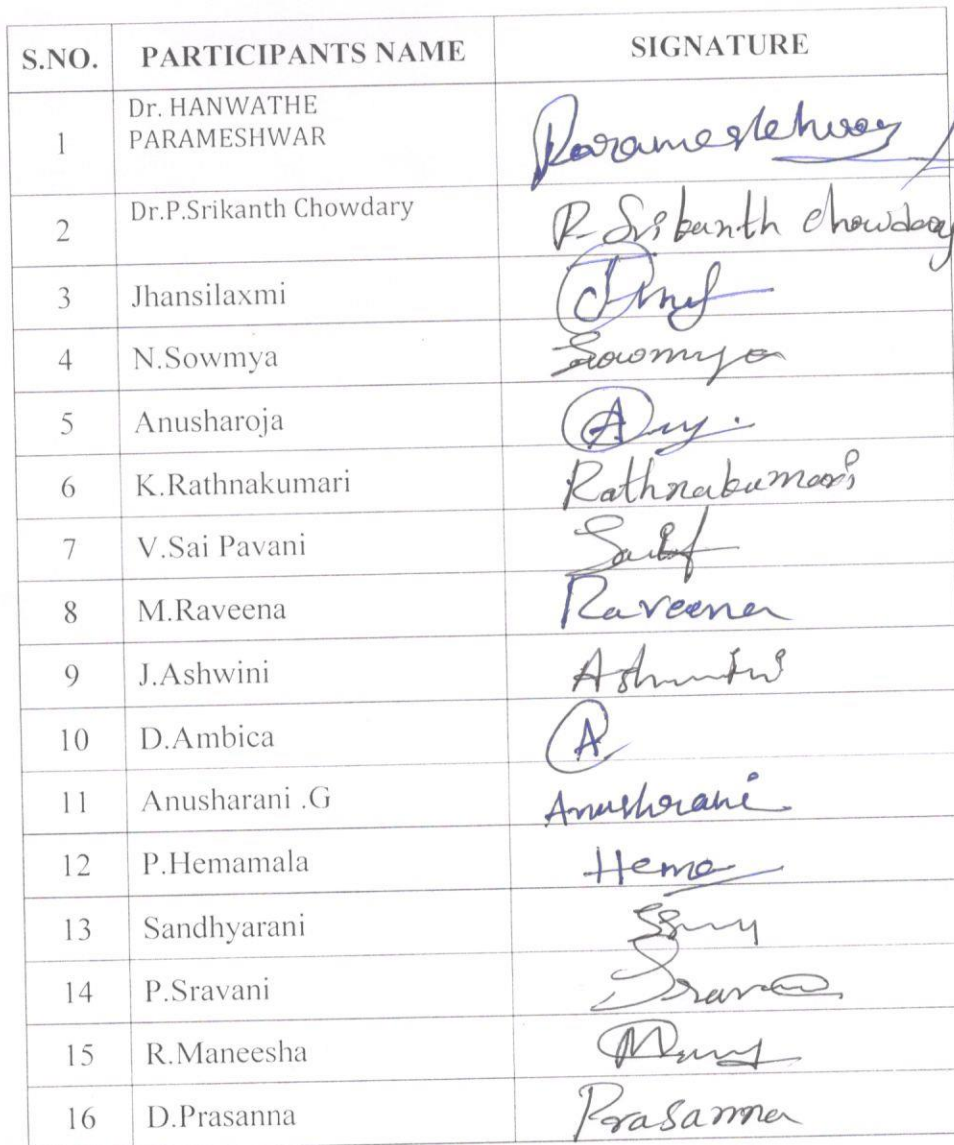 S.NO. PARTICIPANTS NAME SIGNATURE
1 Dr. HANWATHE
PARAMESHWAR Parameshwar
2 Dr.P.Srikanth Chowdary P. Srikanth Chowdary
3 Jhansilaxmi
4 N.Sowmya Sowmya
5 Anusharoja
6 K.Rathnakumari Rathnakumari
7 V.Sai Pavani
8 M.Raveena Raveena
9 J.Ashwini Ashwini
10 D.Ambica A
11 Anusharani .G Anusharani
12 P.Hemamala Hema
13 Sandhyarani
14 P.Sravani
15 R.Maneesha
16 D.Prasanna Prasanna